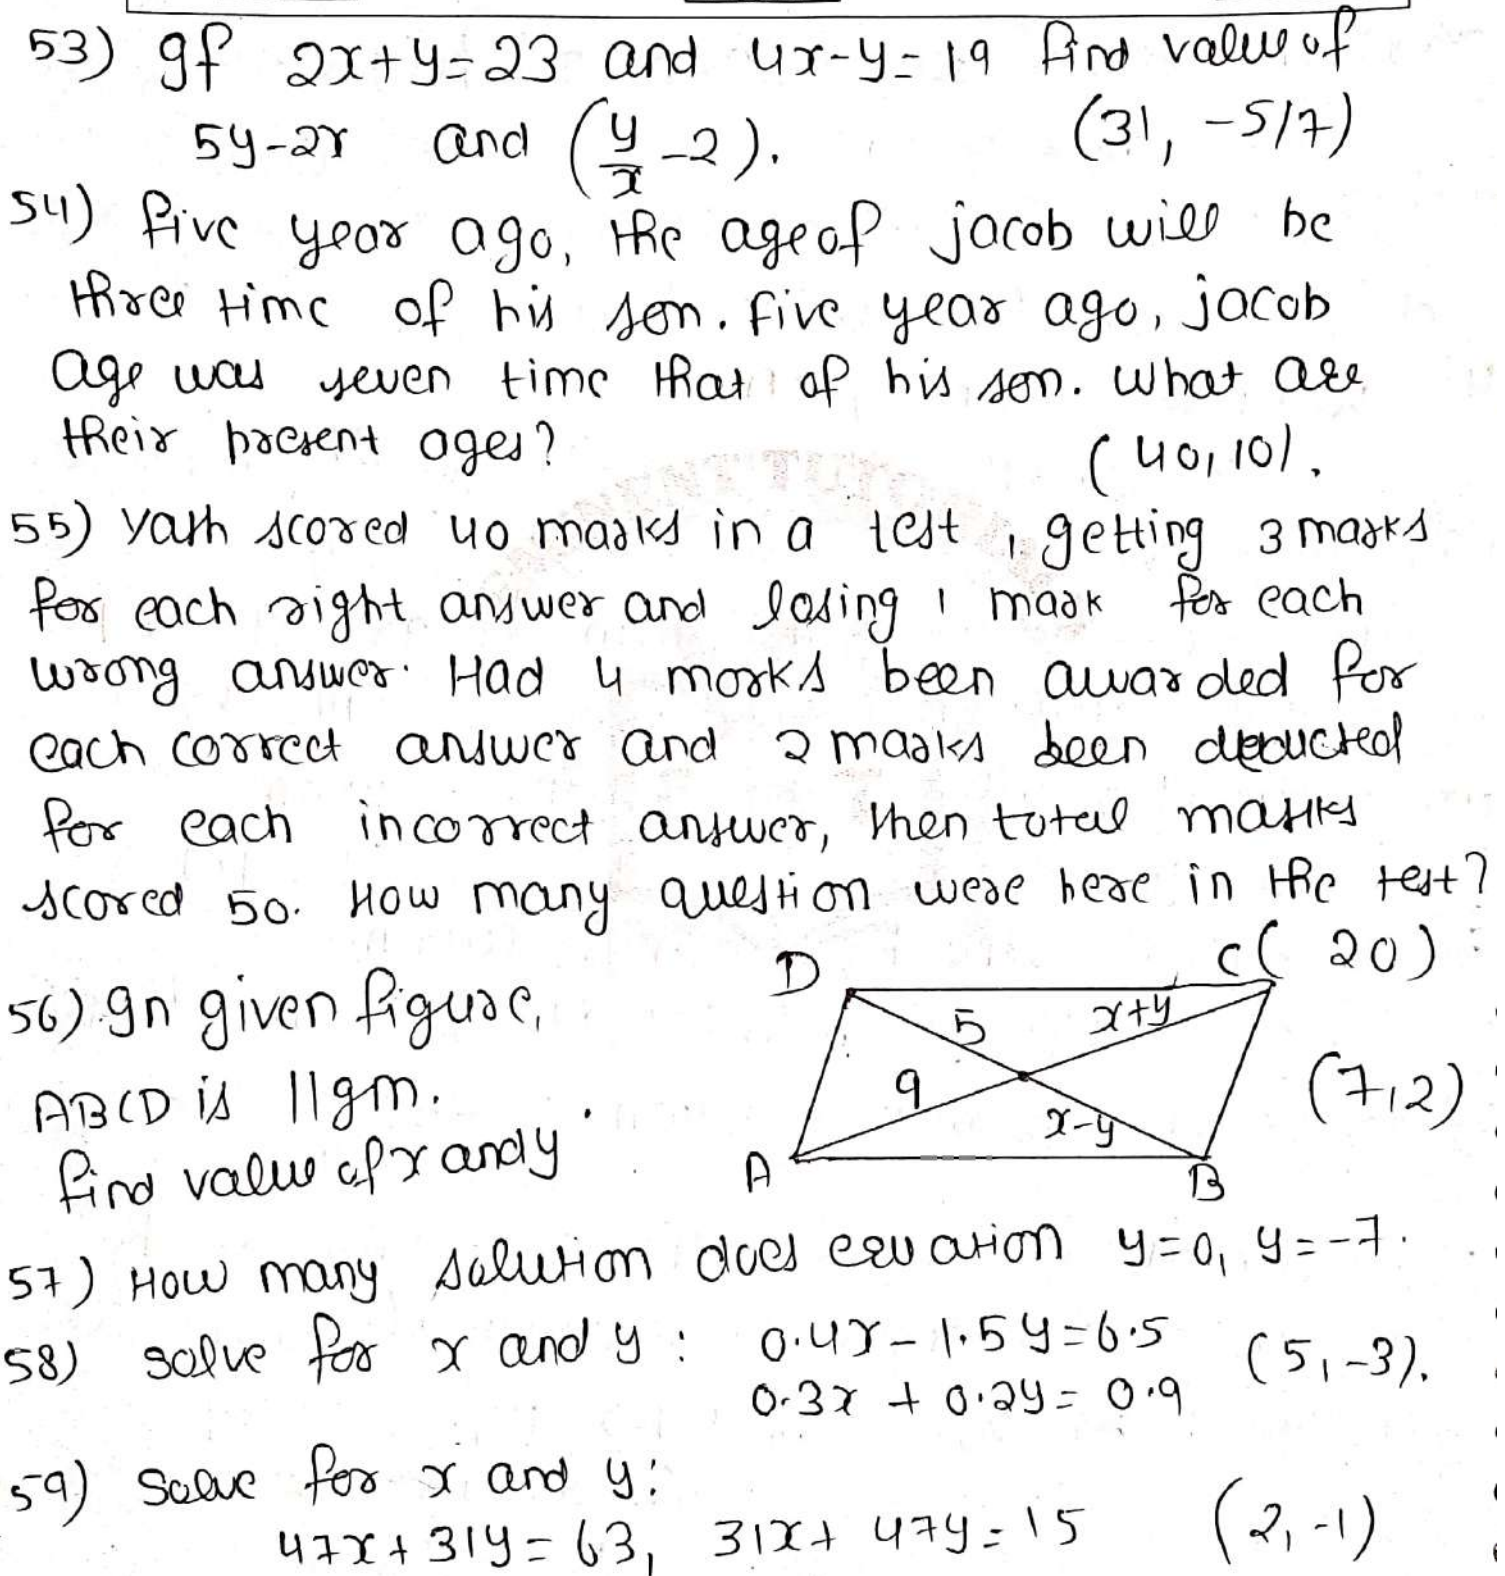 53) If 2x+y=23 and 4x-y=19 find value of
5y-2x and (y/x -2). (31, -5/7)
54) five year ago, the age of jacob will be
three time of his son. five year ago, jacob
age was seven time that of his son. what are
their present ages? (40,10).
55) Yash scored 40 marks in a test, getting 3 marks
for each right answer and losing 1 mark for each
wrong answer. Had 4 marks been awarded for
each correct answer and 2 marks been deducted
for each incorrect answer, then total marks
scored 50. How many question were here in the test?
(20)
56) In given figure,
ABCD is ||gm.
find value of x and y
D C
5 x+y
9 x-y
A B
(7,2)
57) How many solution does equation y=0, y=-7.
58) solve for x and y: 0.4x-1.5y=6.5 (5,-3).
0.3x + 0.2y= 0.9
59) Solve for x and y:
47x+31y=63, 31x+47y=15 (2,-1)